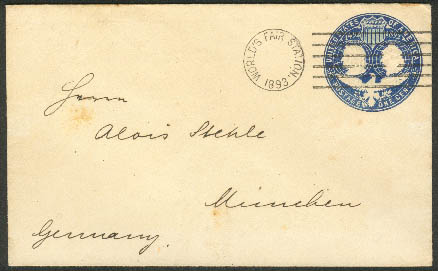 WORLD'S FAIR STATION.
1893
UNITED STATES OF AMERICA
POSTAGE ONE CENT
Herrn
Alois Stehle
München
Germany.